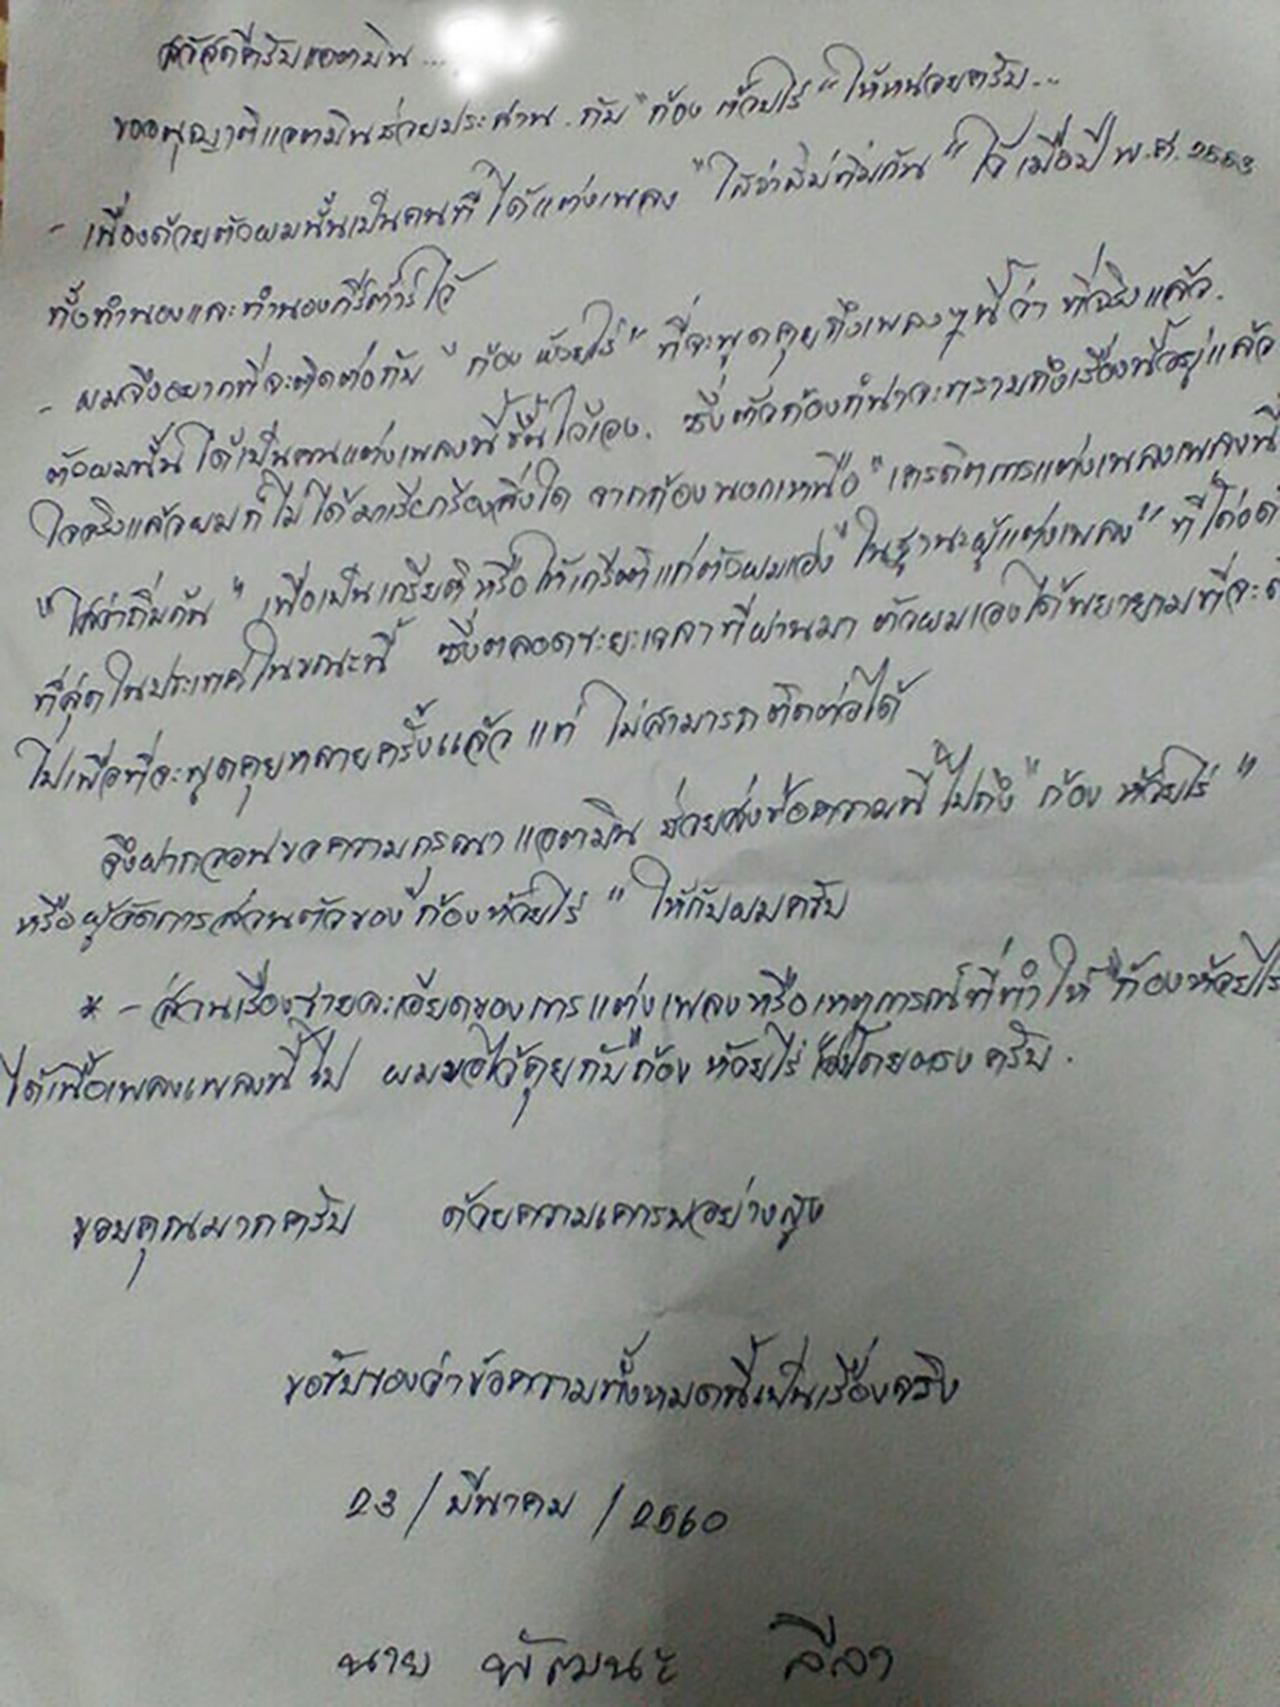 สวัสดีครับแอดมิน...
ขออนุญาติแอดมินช่วยประสาน.กับ "ก้อง ห้วยไร่" ให้หน่อยครับ...
- เนื่องด้วยตัวผมนั้นเป็นคนที่ได้แต่งเพลง "ไสว่าสิบ่ถิ่มกัน" ไว้ เมื่อปี พ.ศ. 2553
ทั้งทำนองและทำนองกีร์ต้าร์ไว้
- ผมจึงอยากที่จะติดต่อกับ "ก้อง ห้วยไร่" ที่จะพูดคุยถึงเพลงๆนี้ว่า ที่จริงแล้ว.
ตัวผมนั้นได้เป็นคนแต่งเพลงนี้ขึ้นไว้เอง. ซึ่งตัวก้องก็น่าจะทราบถึงเรื่องนี้อยู่แล้ว
ใจจริงแล้วผมก็ไม่ได้มาเรียกร้องสิ่งใด จากก้องนอกเหนือ "เครดิตการแต่งเพลงเพลงนี้
"ไสว่าถิ่มกัน" เพื่อเป็นเกรียติหรือให้เกรียติแก่ตัวผมเอง "ในฐานะผู้แต่งเพลง" ที่
ที่สุดในประเทศในขณะนี้ ซึ่งตลอดระยะเวลาที่ผ่านมา ตัวผมเองได้พยายามที่จะ
ไปเพื่อที่จะพูดคุยหลายครั้งแล้ว แต่ ไม่สามารถติดต่อได้
จึงฝากวอนขอความกรุณาแอดมิน ช่วยส่งข้อความนี้ ไปถึง "ก้อง ห้วยไร่"
หรือผู้จัดการส่วนตัวของ "ก้องห้วยไร่" ให้กับผมครับ
* - ส่วนเรื่องรายละเอียดของการแต่งเพลงหรือเหตุการณ์ที่ทำให้ "ก้องห้วยไร่
ได้เนื้อเพลงเพลงนี้ไป ผมขอไว้คุยกับก้อง ห้วยไร่ โดยตรงครับ.
ขอบคุณมากครับ ด้วยความเคารพอย่างสูง
ขอรับรองว่าข้อความทั้งหมดนี้เป็นเรื่องจริง
23 / มีนาคม / 2560
นาย พัฒนะ ลีลา